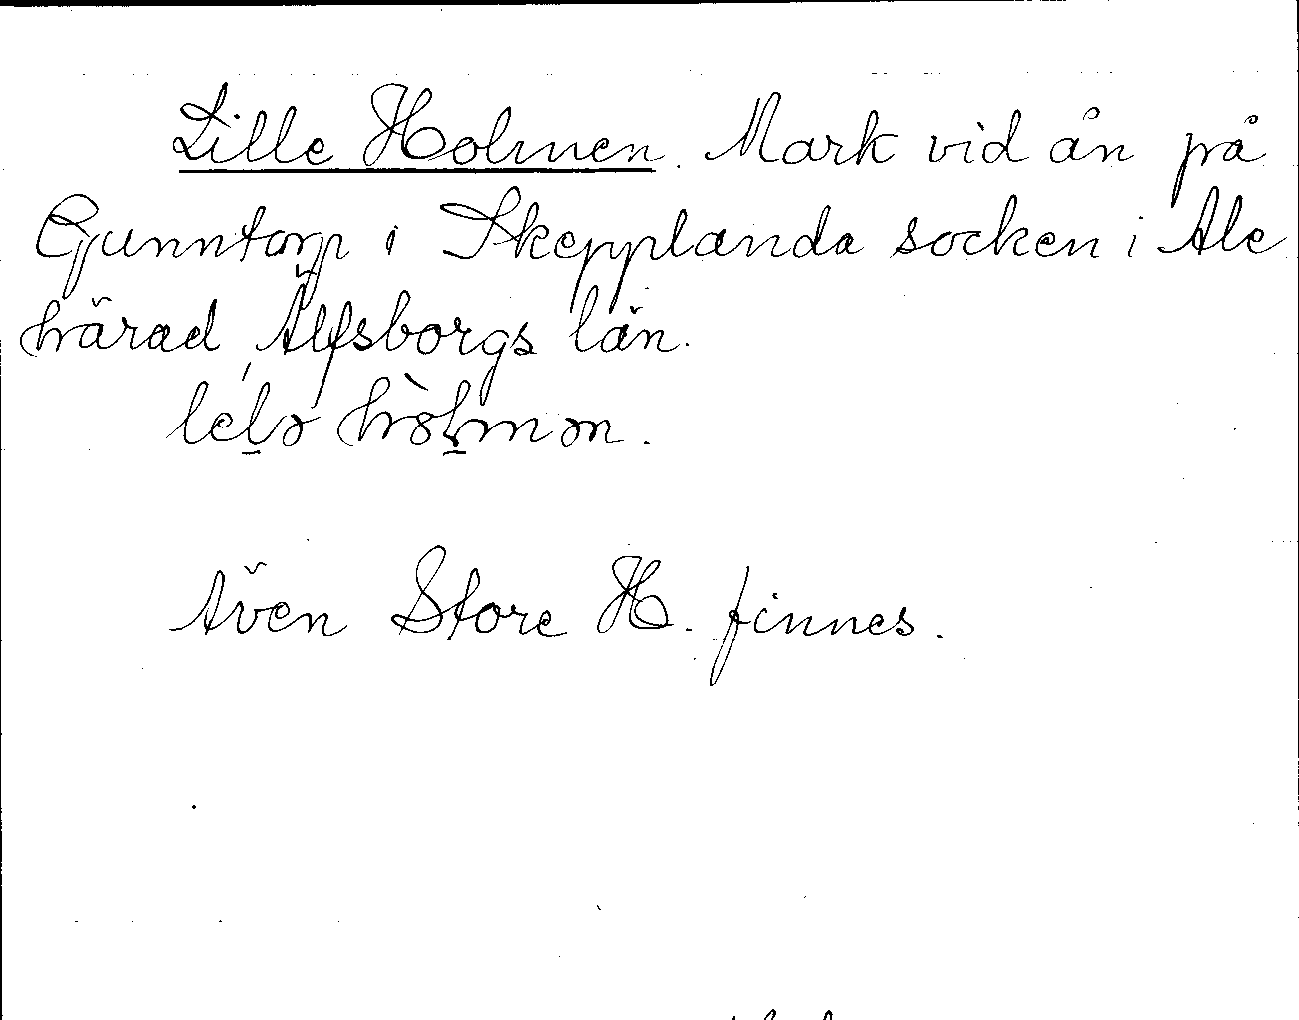 Lille Holmen. Mark vid ån på
Gunntorp i Skepplanda socken i Ale
härad, Älfsborgs län.
Även Store H. finnes.